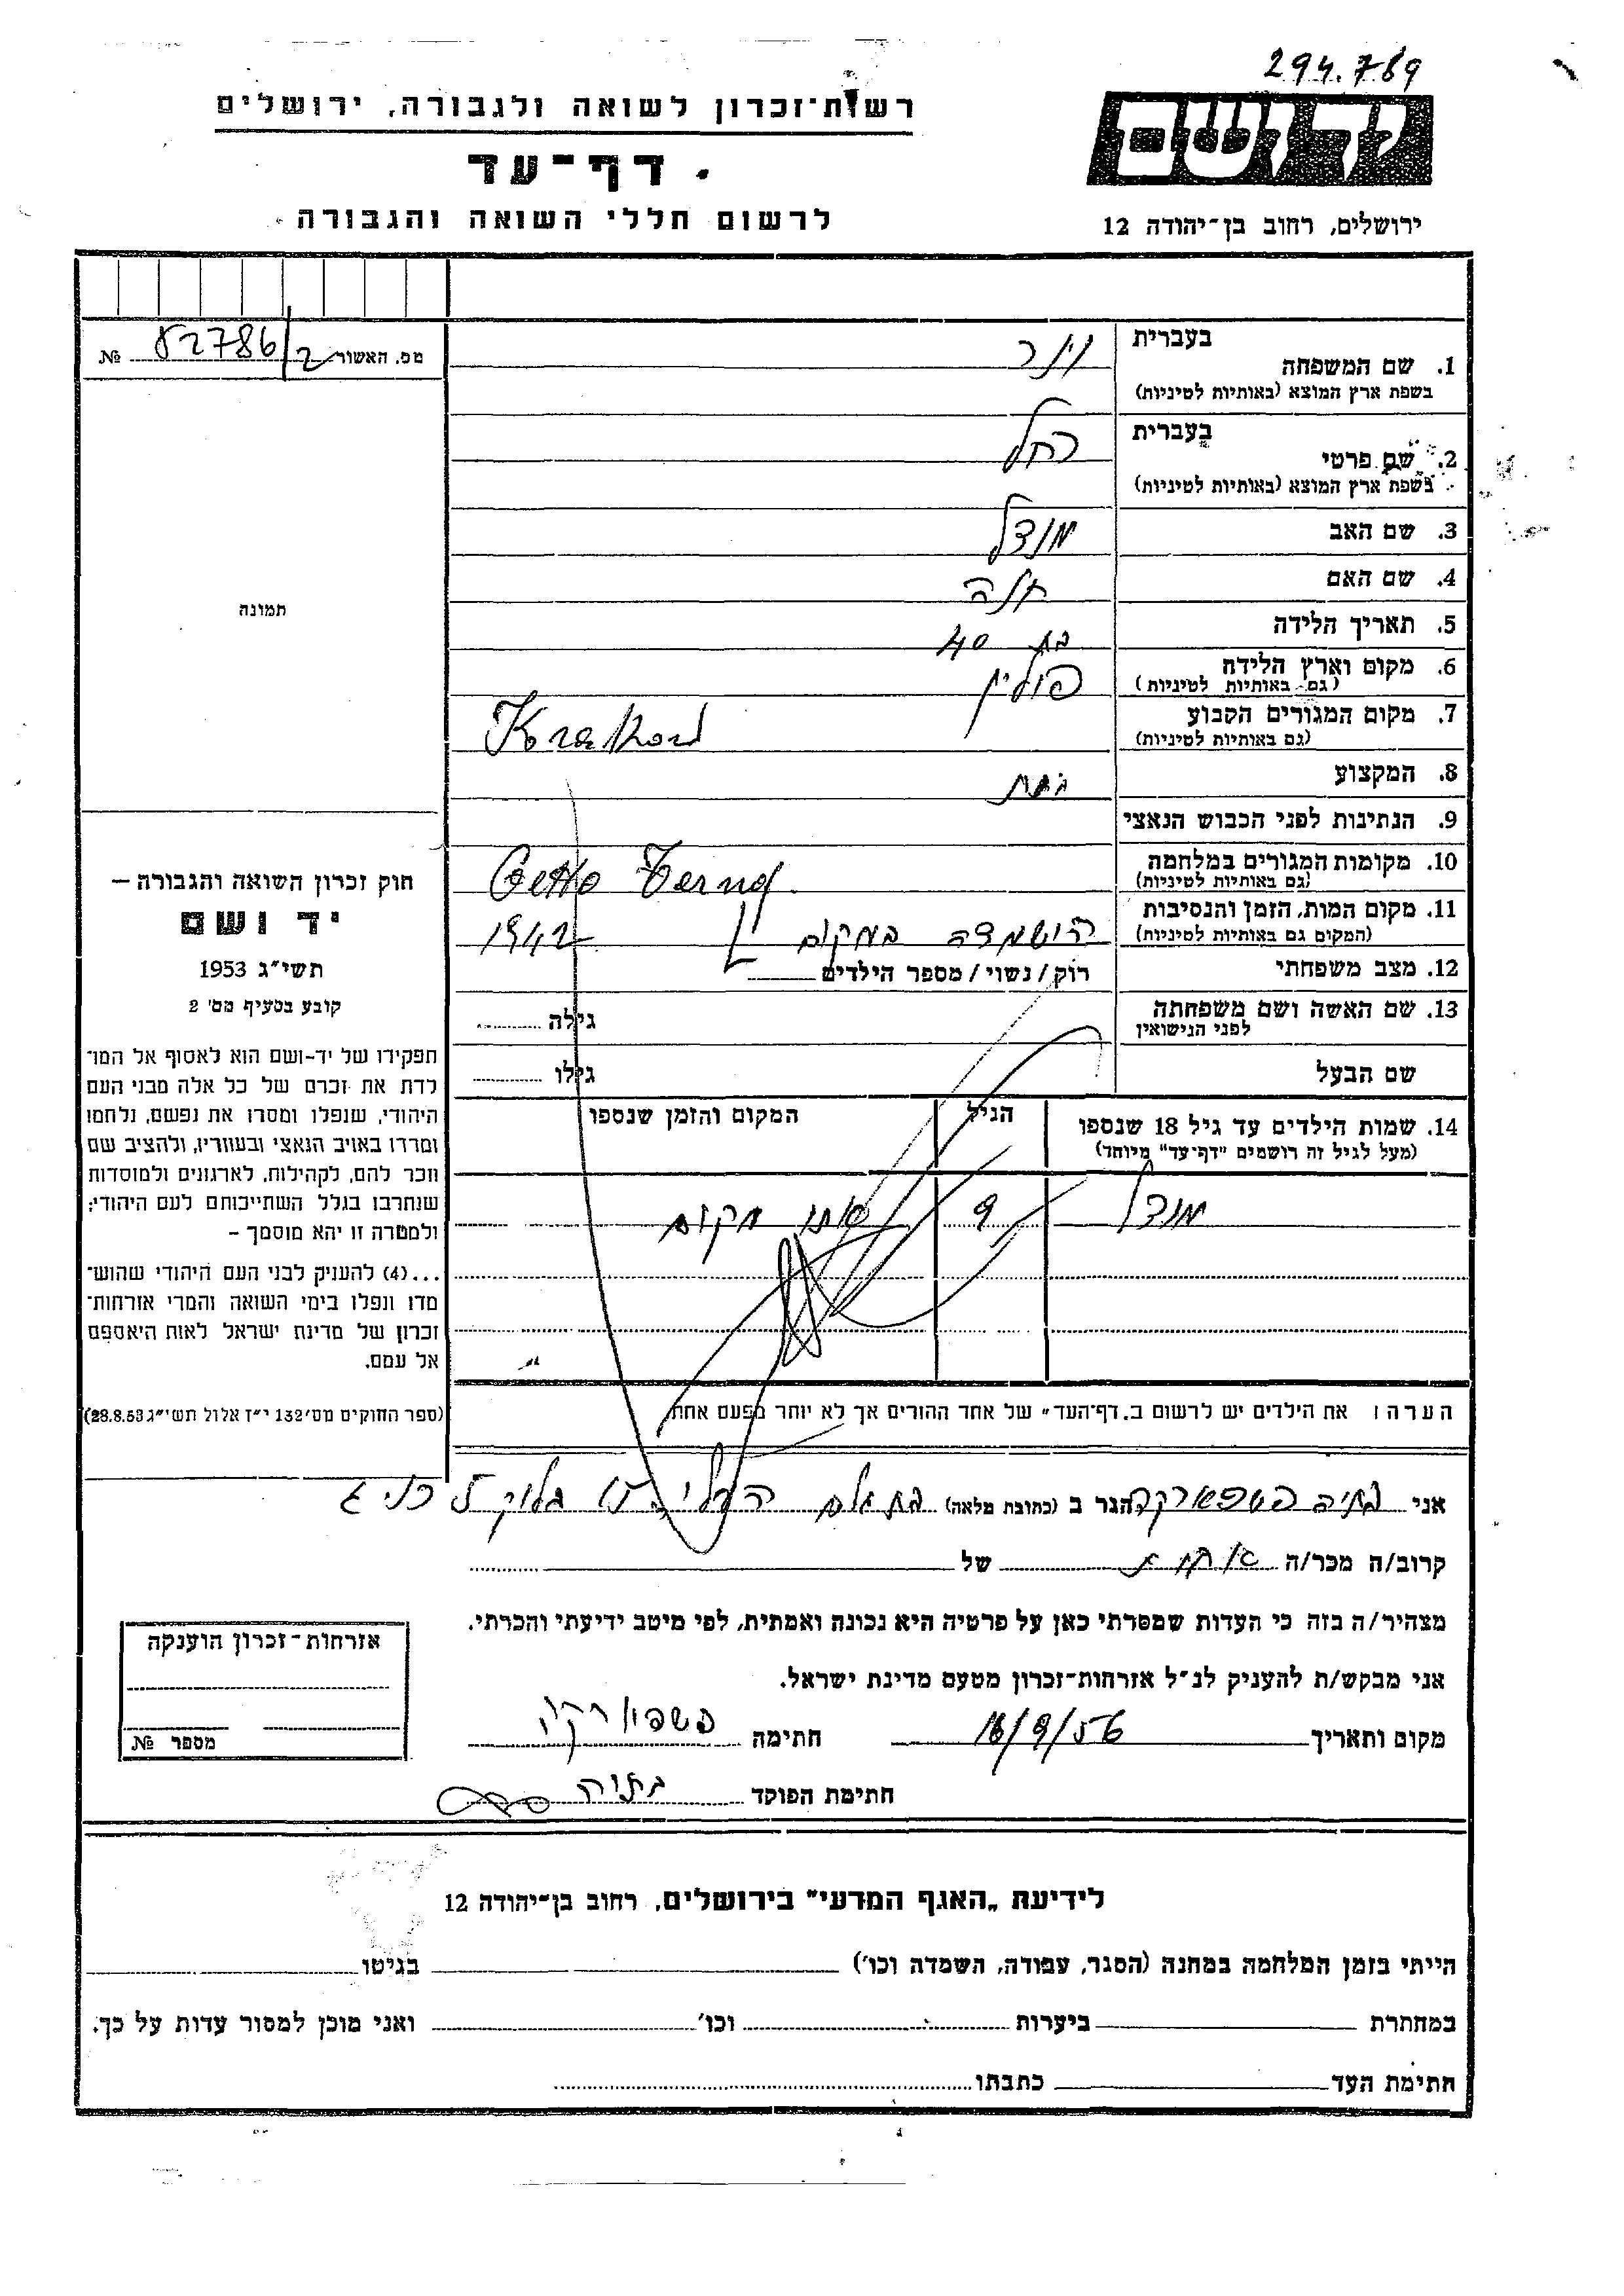 294.789
רשות־זכרון לשואה ולגבורה, ירושלים
יד ושם
דף־עד
לרשום חללי השואה והגבורה
ירושלים, רחוב בן־יהודה 12
מס. האשור 82786/2 №
בעברית
1. שם המשפחה
וינר
(בשפת ארץ המוצא (באותיות לטיניות
בעברית
2. שם פרטי
רחל
(בשפת ארץ המוצא (באותיות לטיניות
3. שם האב מנדל
4. שם האם חנה
5. תאריך הלידה בת 40
6. מקום וארץ הלידה פולין
(גם באותיות לטיניות)
7. מקום המגורים הקבוע Krakow
(גם באותיות לטיניות)
8. המקצוע
9. הנתינות לפני הכבוש הנאצי
10. מקומות המגורים במלחמה Getto
(גם באותיות לטיניות)
11. מקום המות, הזמן והנסיבות הושמדה במקום 1942
(המקום גם באותיות לטיניות)
12. מצב משפחתי רוק/נשוי/מספר הילדים
13. שם האשה ושם משפחתה גילה
לפני הנישואין
שם הבעל גילו
14. שמות הילדים עד גיל 18 שנספו הגיל המקום והזמן שנספו
(מעל לגיל זה רושמים "דף־עד" מיוחד)
מנדל 9 אותו מקום
הערה: את הילדים יש לרשום ב„דף־העד" של אחד ההורים אך לא יותר מפעם אחת.
תמונה
חוק זכרון השואה והגבורה —
יד ושם
תשי"ג 1953
קובע בסעיף מס' 2
תפקידו של יד־ושם הוא לאסוף אל המו־
לדת את זכרם של כל אלה מבני העם
היהודי, שנפלו ומסרו את נפשם, נלחמו
ומרדו באויב הנאצי ובעוזריו, ולהציב שם
וזכר להם, לקהילות, לארגונים ולמוסדות
שנחרבו בגלל השתייכותם לעם היהודי;
ולמטרה זו יהא מוסמך –
...(4) להעניק לבני העם היהודי שהוש־
מדו ונפלו בימי השואה והמרי אזרחות־
זכרון של מדינת ישראל לאות היאספם
אל עמם.
(ספר החוקים מס' 132 י"ז אלול תשי"ג 28.8.53)
אני בתיה הגר ב (כתובת מלאה)
קרוב/ה מכר/ה אחות של
מצהיר/ה בזה כי העדות שמסרתי כאן על פרטיה היא נכונה ואמתית, לפי מיטב ידיעתי והכרתי.
אני מבקש/ת להעניק לנ"ל אזרחות־זכרון מטעם מדינת ישראל.
מקום ותאריך 18/9/56 חתימה
חתימת הפוקד בתיה
אזרחות־זכרון הוענקה
מספר №
לידיעת „האגף המדעי" בירושלים, רחוב בן־יהודה 12
הייתי בזמן המלחמה במחנה (הסגר, עבודה, השמדה וכו') בגיטו
במחתרת ביערות וכו' ואני מוכן למסור עדות על כך.
חתימת העד כתבתו